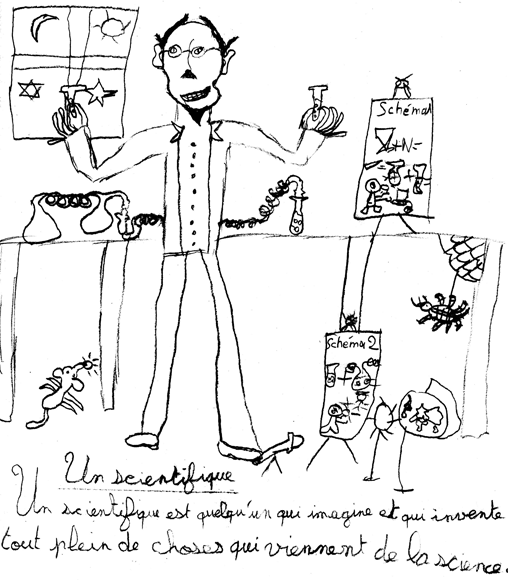 Schéma1
+N=
Schéma 2
Un scientifique
Un scientifique est quelqu'un qui imagine et qui invente
tout plein de choses qui viennent de la science.